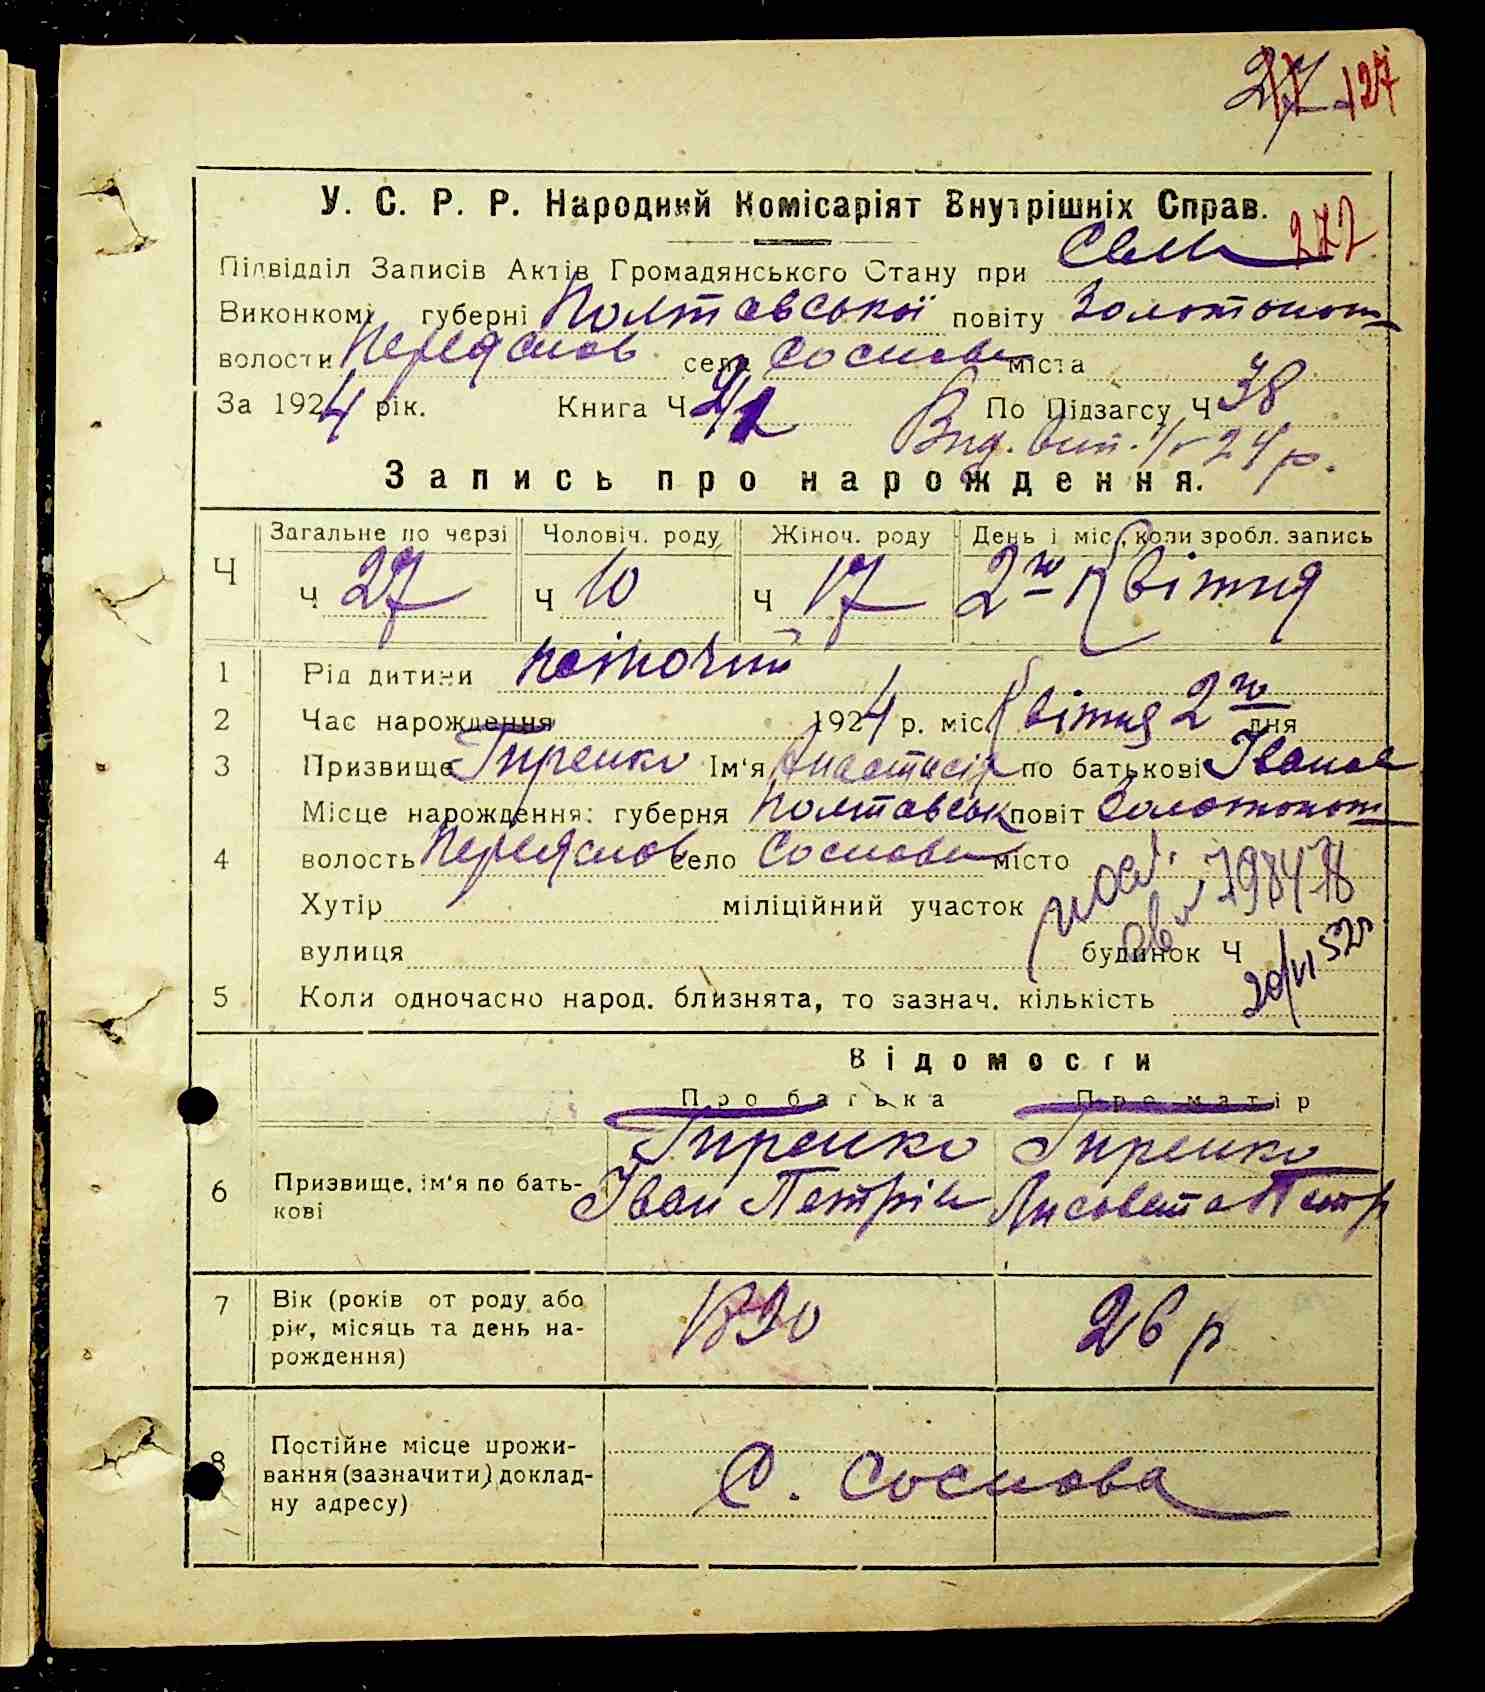 27 127
У. С. Р. Р. Народний Комісаріят Внутрішніх Справ.
272
Підвідділ Записів Актів Громадянського Стану при Сельс
Виконкомі губерні Полтавської повіту Золотонош
волости Переяслов села Соснова міста
За 1924 рік. Книга Ч По Підзагсу Ч 38
Вид. вип. 24 р.
Запись про нарождення.
Ч Загальне по черзі Чоловіч. роду Жіноч. роду День і міс., коли зробл. запись
Ч 27 Ч 10 Ч 17 2го Квітня
1 Рід дитини жіночий
2 Час нарождення 1924 р. міс Квітня 2го дня
3 Призвище Гиренко Ім'я Анастасія по батькові Іванов
Місце нарождення: губерня Полтавськ повіт Золотонош
4 волость Переяслов село Соснова місто
Хутір міліційний участок 798478
вулиця будинок Ч
20/VI 52р
5 Коли одночасно народ. близнята, то зазнач. кількість
Відомости
Про батька Про матір
6 Призвище, ім'я по бать-
кові
Гиренко Гиренко
Іван Петрів Лисовета Петр
7 Вік (років от роду або
рік, місяць та день на-
рождення)
1890 26 р
8 Постійне місце прожи-
вання (зазначити) доклад-
ну адресу)
С. Соснова